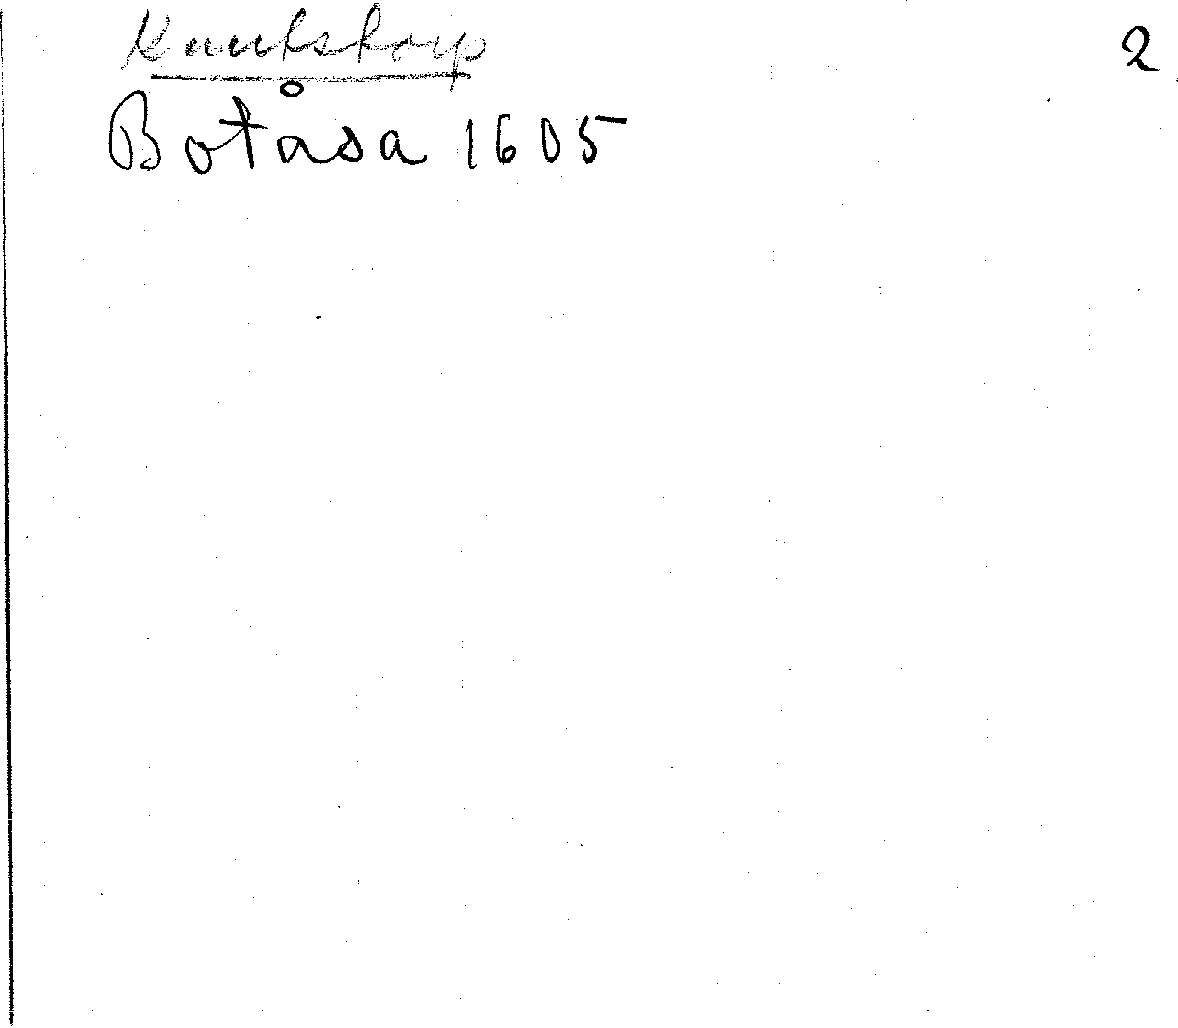 Knutstorp 2
Botåsa 1605